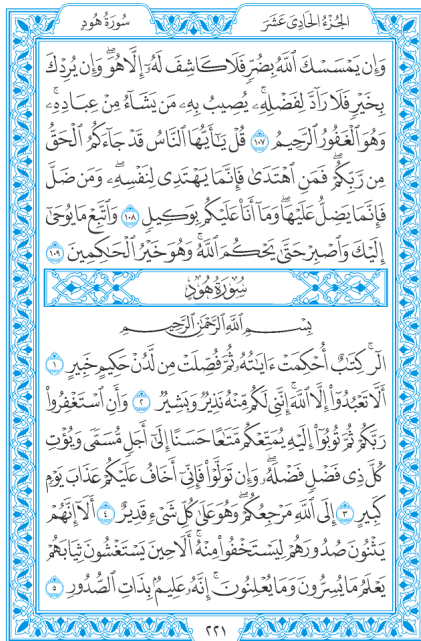 الجُزْءُ الحَادِي عَشَرَ
سُورَةُ هُودٍ
وَإِن يَمْسَسْكَ ٱللَّهُ بِضُرٍّ فَلَا كَاشِفَ لَهُۥٓ إِلَّا هُوَۖ وَإِن يُرِدْكَ
بِخَيْرٍ فَلَا رَآدَّ لِفَضْلِهِۦۚ يُصِيبُ بِهِۦ مَن يَشَآءُ مِنْ عِبَادِهِۦۚ
وَهُوَ ٱلْغَفُورُ ٱلرَّحِيمُ ١٠٧ قُلْ يَٰٓأَيُّهَا ٱلنَّاسُ قَدْ جَآءَكُمُ ٱلْحَقُّ
مِن رَّبِّكُمْۖ فَمَنِ ٱهْتَدَىٰ فَإِنَّمَا يَهْتَدِى لِنَفْسِهِۦۖ وَمَن ضَلَّ
فَإِنَّمَا يَضِلُّ عَلَيْهَاۖ وَمَآ أَنَا۠ عَلَيْكُم بِوَكِيلٍ ١٠٨ وَٱتَّبِعْ مَا يُوحَىٰٓ
إِلَيْكَ وَٱصْبِرْ حَتَّىٰ يَحْكُمَ ٱللَّهُۚ وَهُوَ خَيْرُ ٱلْحَٰكِمِينَ ١٠٩
سُورَةُ هُودٍ
بِسْمِ ٱللَّهِ ٱلرَّحْمَٰنِ ٱلرَّحِيمِ
الٓرۚ كِتَٰبٌ أُحْكِمَتْ ءَايَٰتُهُۥ ثُمَّ فُصِّلَتْ مِن لَّدُنْ حَكِيمٍ خَبِيرٍ ١
أَلَّا تَعْبُدُوٓا۟ إِلَّا ٱللَّهَۚ إِنَّنِى لَكُم مِّنْهُ نَذِيرٌ وَبَشِيرٌ ٢ وَأَنِ ٱسْتَغْفِرُوا۟
رَبَّكُمْ ثُمَّ تُوبُوٓا۟ إِلَيْهِ يُمَتِّعْكُم مَّتَٰعًا حَسَنًا إِلَىٰٓ أَجَلٍ مُّسَمًّى وَيُؤْتِ
كُلَّ ذِى فَضْلٍ فَضْلَهُۥۖ وَإِن تَوَلَّوْا۟ فَإِنِّىٓ أَخَافُ عَلَيْكُمْ عَذَابَ يَوْمٍ
كَبِيرٍ ٣ إِلَى ٱللَّهِ مَرْجِعُكُمْۖ وَهُوَ عَلَىٰ كُلِّ شَىْءٍ قَدِيرٌ ٤ أَلَآ إِنَّهُمْ
يَثْنُونَ صُدُورَهُمْ لِيَسْتَخْفُوا۟ مِنْهُۚ أَلَا حِينَ يَسْتَغْشُونَ ثِيَابَهُمْ
يَعْلَمُ مَا يُسِرُّونَ وَمَا يُعْلِنُونَۚ إِنَّهُۥ عَلِيمٌۢ بِذَاتِ ٱلصُّدُورِ ٥
٢٢١